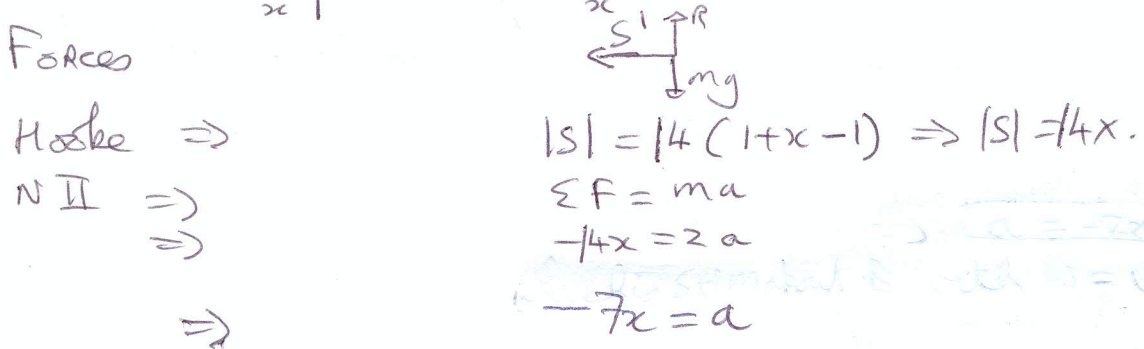 x x
Forces S R mg
Hooke ⇒ |S| = 14(1+x-1) ⇒ |S| = 14x.
N II ⇒ ΣF = ma
⇒ -14x = 2a
⇒ -7x = a